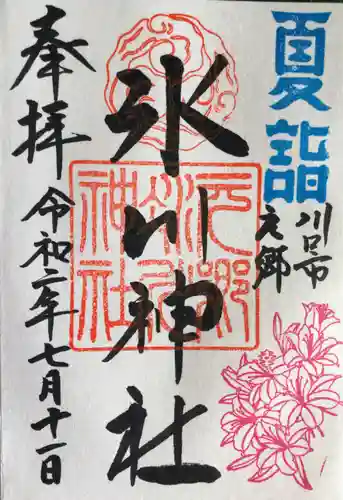 夏詣
川口市
元郷
氷川神社
元郷氷川神社
奉拝
令和二年七月十一日